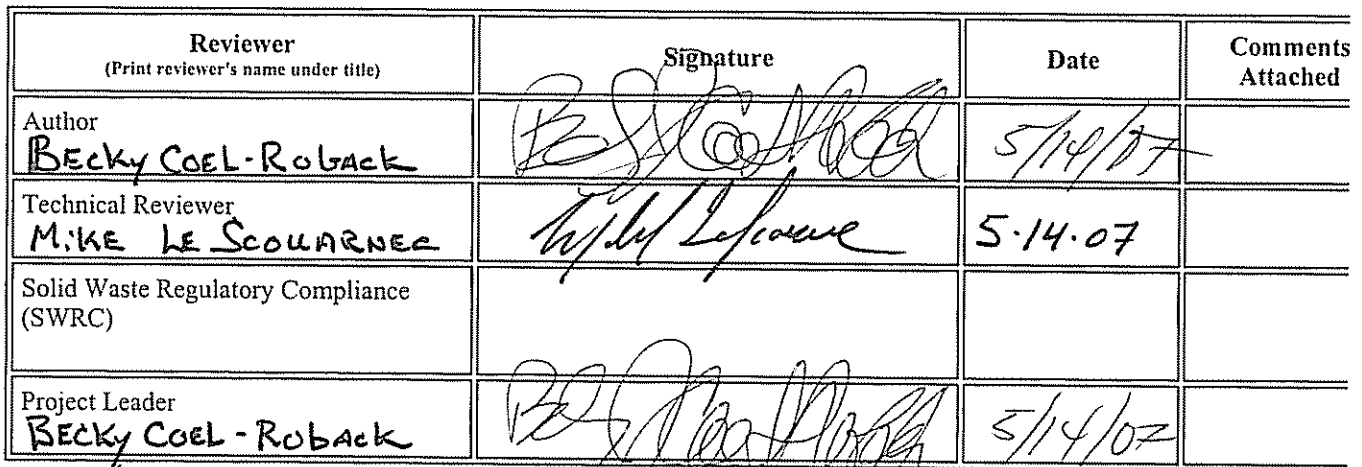 Reviewer
(Print reviewer's name under title)
Signature
Date
Comments
Attached
Author
BECKY COEL-ROBACK
5/14/07
Technical Reviewer
MIKE LE SCOUARNEC
5.14.07
Solid Waste Regulatory Compliance
(SWRC)
Project Leader
BECKY COEL-ROBACK
5/14/07